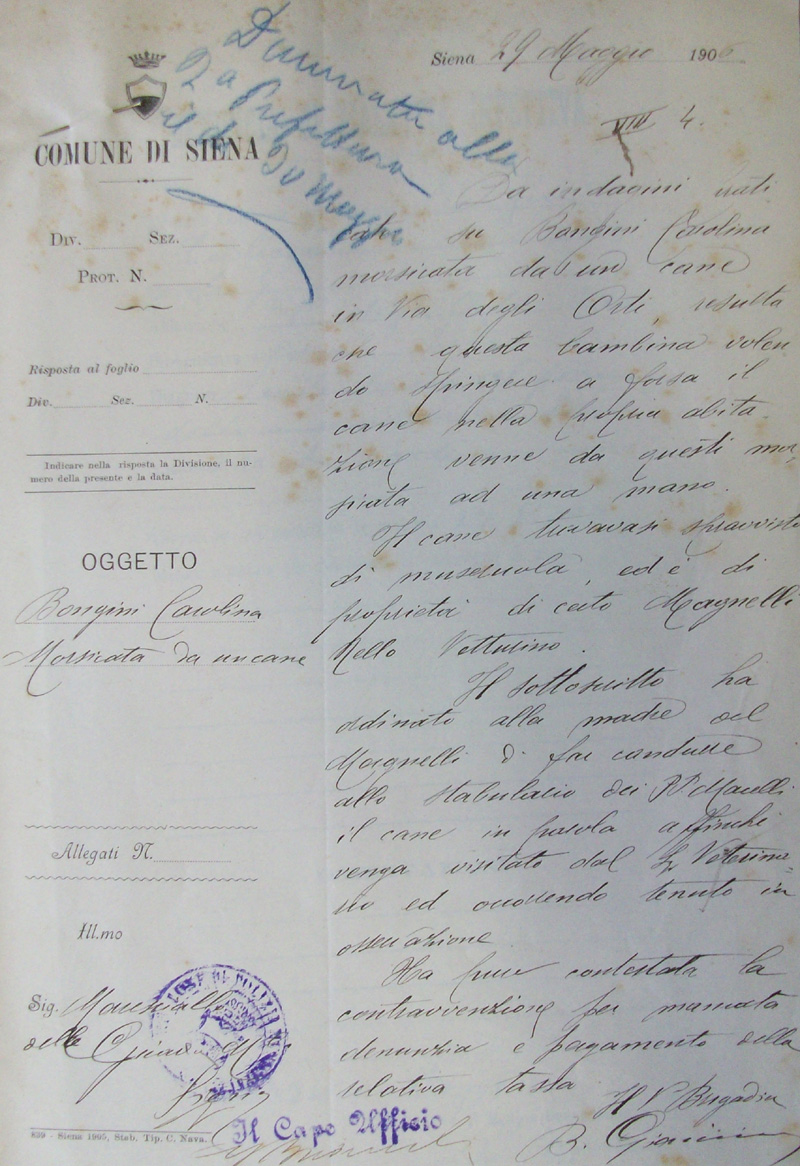 Siena 29 Maggio 1906
VIII 4.
Denunziata alla
R a Prefettura
il dì 30 Maggio
COMUNE DI SIENA
DIV. SEZ.
PROT. N.
Risposta al foglio
Div. Sez. N.
Indicare nella risposta la Divisione, il nu-
mero della presente e la data.
OGGETTO
Bongini Carolina
Morsicata da un cane
Allegati N.
Ill.mo
Sig. Maresciallo
delle Guardie
Siena
839 - Siena 1905, Stab. Tip. C. Nava.
Da indagini prati
cate su Bongini Carolina
morsicata da un cane
in Via degli Orti, resulta
che questa bambina volen
do spingere a forsa il
cane nella propria abita
zione venne da questi mor
sicata ad una mano.
Il cane trovavasi sprovvisto
di museruola, ed è di
proprietà di certo Magnelli
Nello Vetturino.
Il sottoscritto ha
ordinato alla madre del
Magnelli di far condurre
allo stabulario dei PP Macelli
il cane in parola affinchè
venga visitato dal Sig Veterina-
rio ed occorrendo tenuto in
osservazione
Ha pure contestata la
contravvenzione per mancata
denunzia e pagamento della
relativa tassa
Il V Brigadiere
B.
Il Capo Ufficio